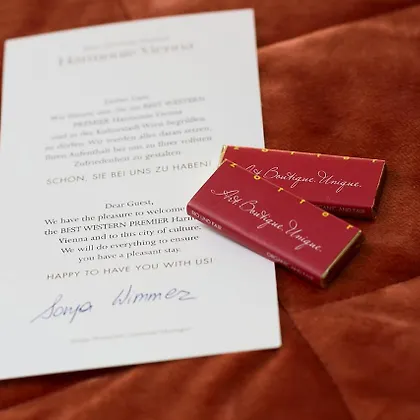 Harmonie Vienna
Lieber Gast,
Wir freuen uns, Sie im BEST WESTERN
PREMIER Harmonie Vienna
und in der Kulturstadt Wien begrüßen
zu dürfen. Wir werden alles daran setzen,
Ihren Aufenthalt bei uns zu Ihrer vollsten
Zufriedenheit zu gestalten.
SCHÖN, SIE BEI UNS ZU HABEN!
Dear Guest,
We have the pleasure to welcome
the BEST WESTERN PREMIER Harm
Vienna and to this city of culture.
We will do everything to ensure
you have a pleasant stay.
HAPPY TO HAVE YOU WITH US!
Sonja Wimmer
Art. Boutique. Unique.
Art. Boutique. Unique.